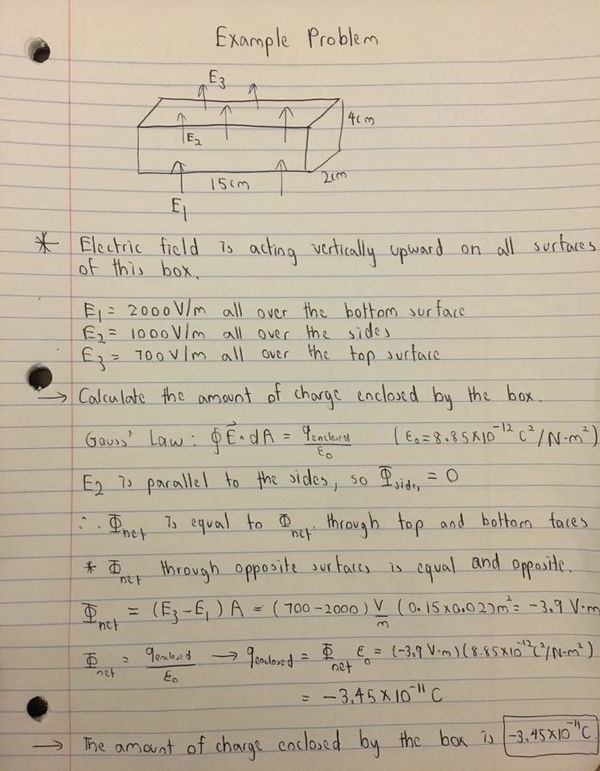 Example Problem
E₃
4cm
E₂
15cm
2cm
E₁
* Electric field is acting vertically upward on all surfaces
of this box.
E₁ = 2000 V/m all over the bottom surface
E₂ = 1000 V/m all over the sides
E₃ = 700 V/m all over the top surface
→ Calculate the amount of charge enclosed by the box.
Gauss' Law: ∮E⃗·dA = q_enclosed/ε₀ (ε₀=8.85×10⁻¹² C²/N·m²)
E₂ is parallel to the sides, so Φ_sides = 0
∴ Φ_net is equal to Φ_net through top and bottom faces
* Φ_net through opposite surfaces is equal and opposite.
Φ_net = (E₃-E₁)A = (700-2000) V/m (0.15×0.02)m² = -3.9 V·m
Φ_net = q_enclosed/ε₀ → q_enclosed = Φ_net ε₀ = (-3.9 V·m)(8.85×10⁻¹² C²/N·m²)
= -3.45×10⁻¹¹ C
→ The amount of charge enclosed by the box is -3.45×10⁻¹¹ C.